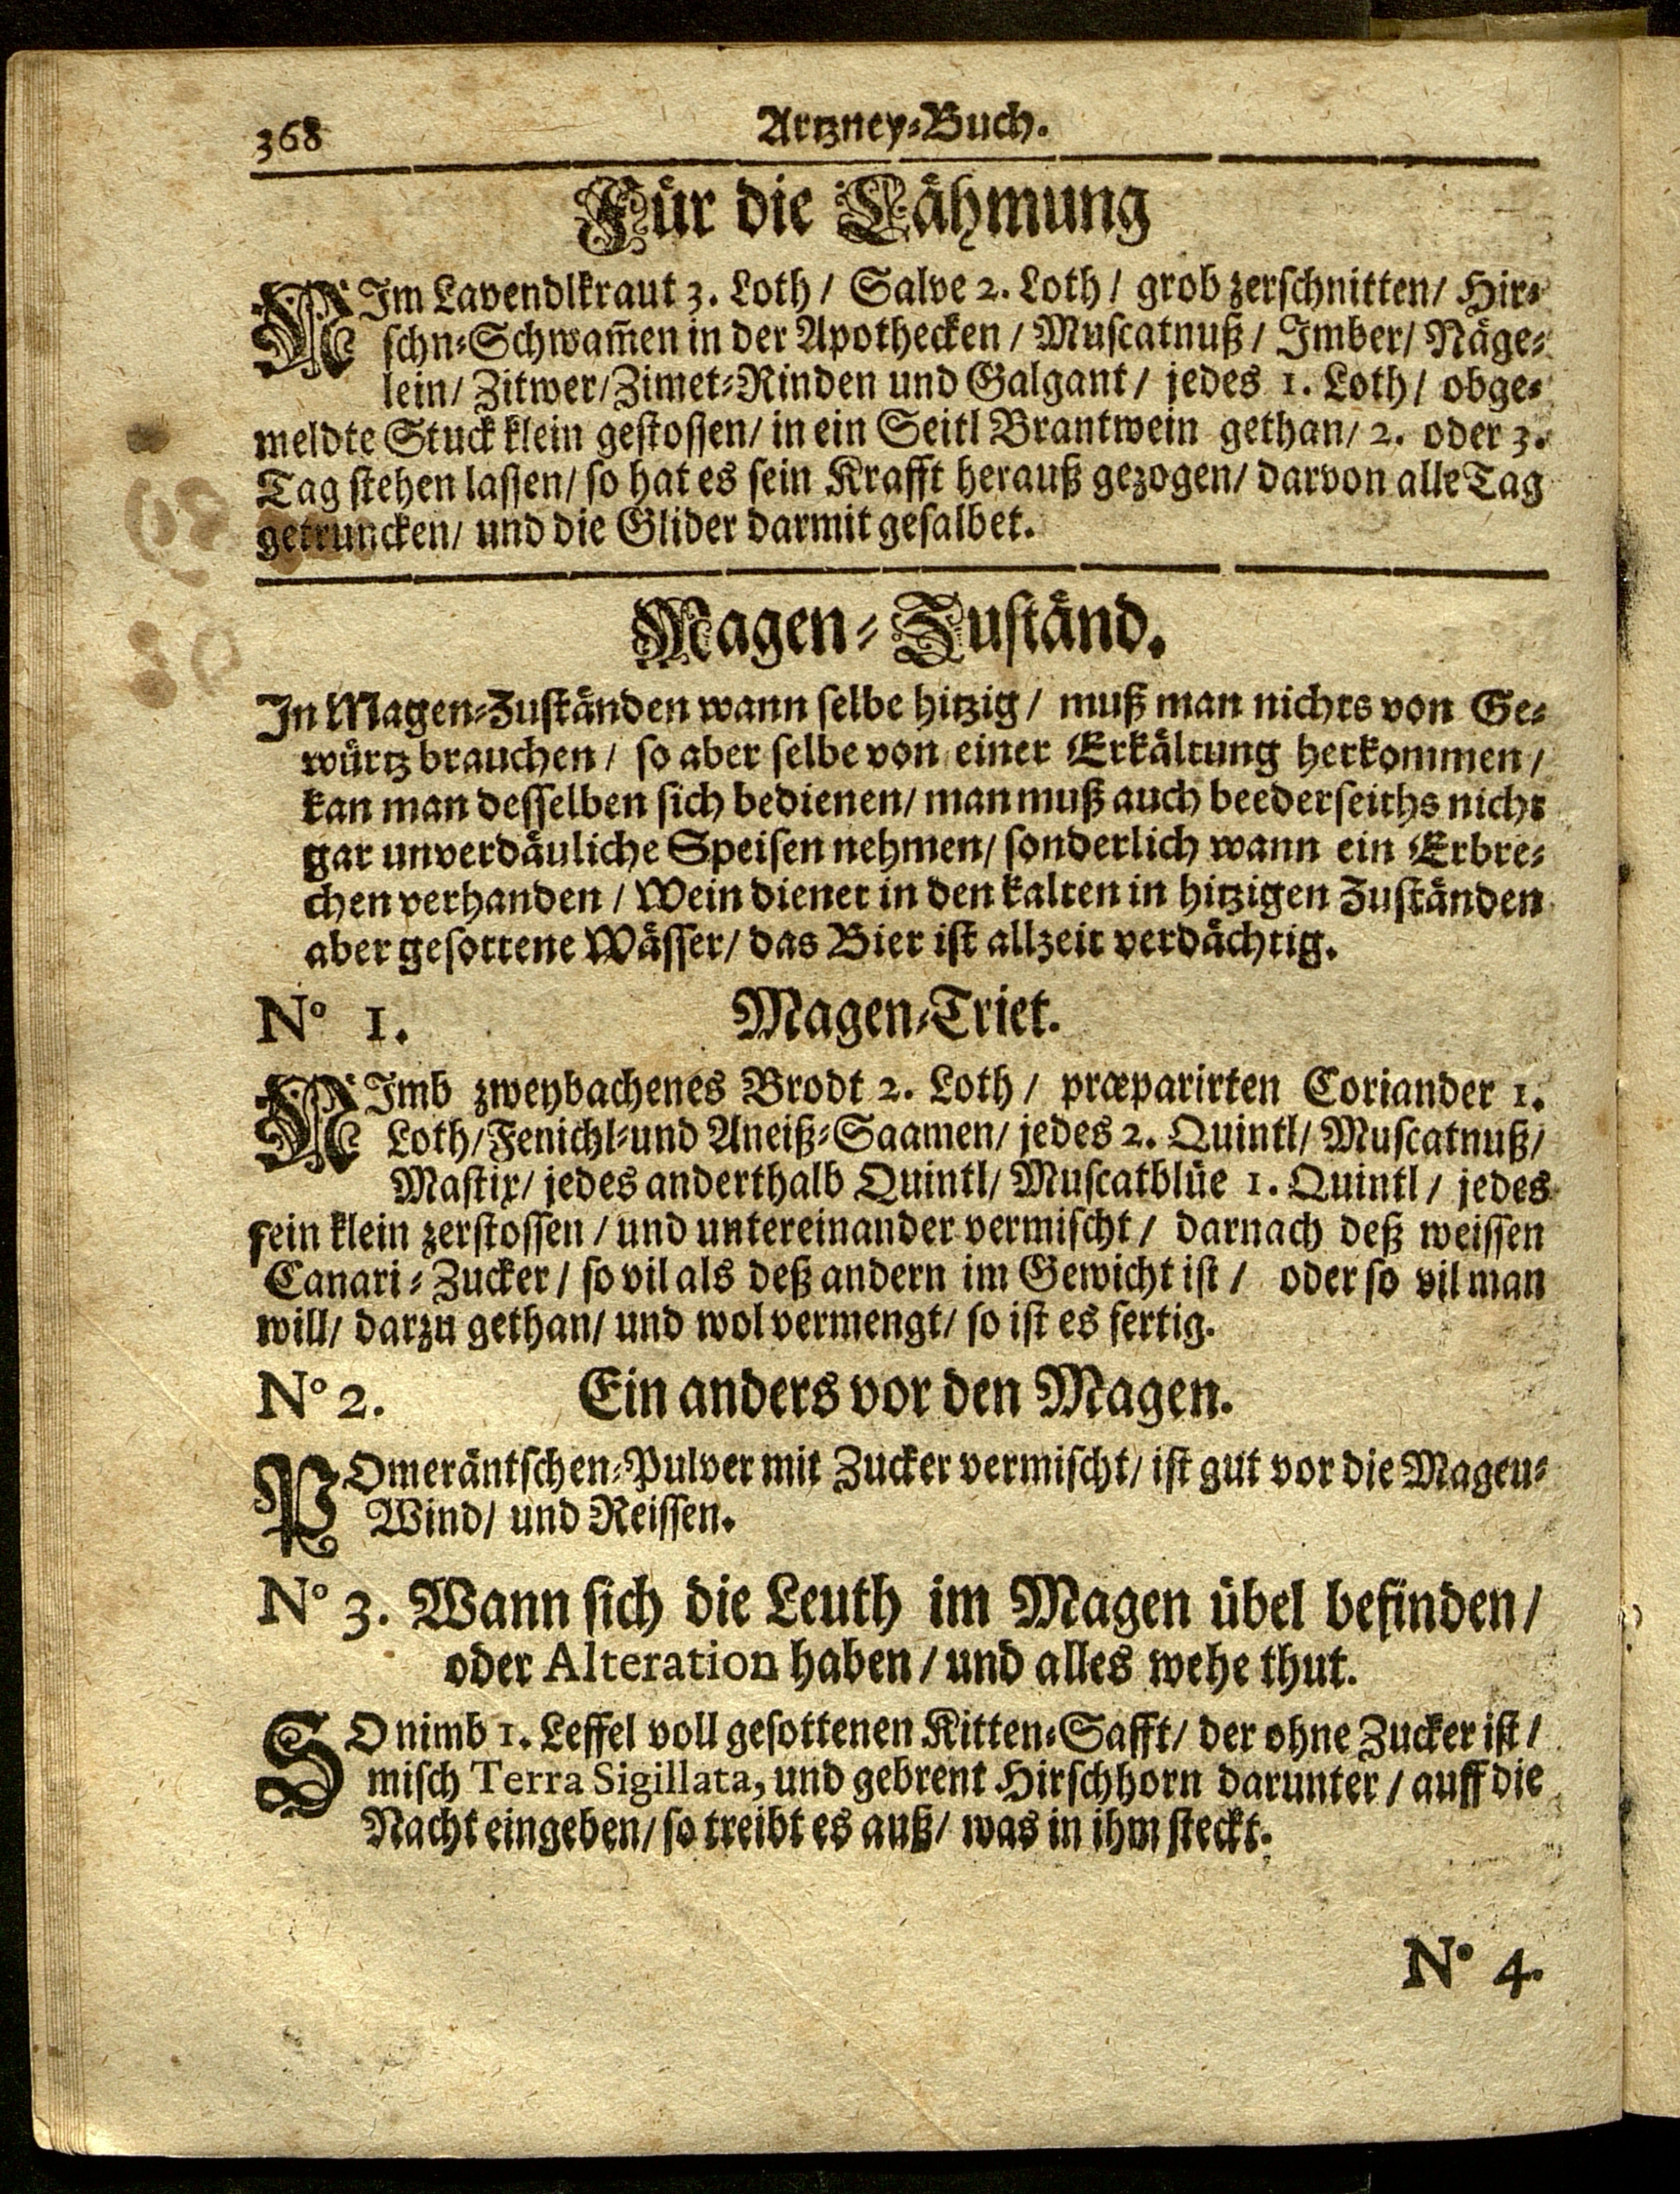 368 Artzney-Buch.
Für die Lähmung
NIm Lavendlkraut 3. Loth / Salve 2. Loth / grob zerschnitten / Hir-
schn-Schwam̃en in der Apothecken / Muscatnuß / Imber / Näge-
lein / Zitwer / Zimet-Rinden und Galgant / jedes 1. Loth / obge-
meldte Stuck klein gestossen / in ein Seitl Brantwein gethan / 2. oder 3.
Tag stehen lassen / so hat es sein Krafft herauß gezogen / darvon alle Tag
getruncken / und die Glider darmit gesalbet.
Magen-Zuständ.
In Magen-Zuständen wann selbe hitzig / muß man nichts von Ge-
würtz brauchen / so aber selbe von einer Erkältung herkommen /
kan man desselben sich bedienen / man muß auch beederseiths nicht
gar unverdäuliche Speisen nehmen / sonderlich wann ein Erbre-
chen verhanden / Wein dienet in den kalten in hitzigen Zuständen
aber gesottene Wässer / das Bier ist allzeit verdächtig.
No 1. Magen-Triet.
NImb zweybachenes Brodt 2. Loth / præparirten Coriander 1.
Loth / Fenichl-und Aneiß-Saamen / jedes 2. Quintl / Muscatnuß /
Mastix / jedes anderthalb Quintl / Muscatblüe 1. Quintl / jedes
fein klein zerstossen / und untereinander vermischt / darnach deß weissen
Canari-Zucker / so vil als deß andern im Gewicht ist / oder so vil man
will / darzu gethan / und wol vermengt / so ist es fertig.
No 2. Ein anders vor den Magen.
POmeräntschen-Pulver mit Zucker vermischt / ist gut vor die Magen-
Wind / und Reissen.
No 3. Wann sich die Leuth im Magen übel befinden /
oder Alteration haben / und alles wehe thut.
SO nimb 1. Leffel voll gesottenen Kitten-Safft / der ohne Zucker ist /
misch Terra Sigillata, und gebrent Hirschhorn darunter / auff die
Nacht eingeben / so treibt es auß / was in ihm steckt.
No 4.